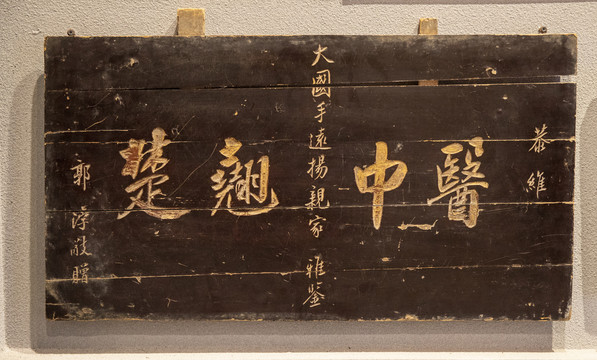 恭維
醫中翹楚
大國手遠揚親家雅鑒
郭淳敬贈